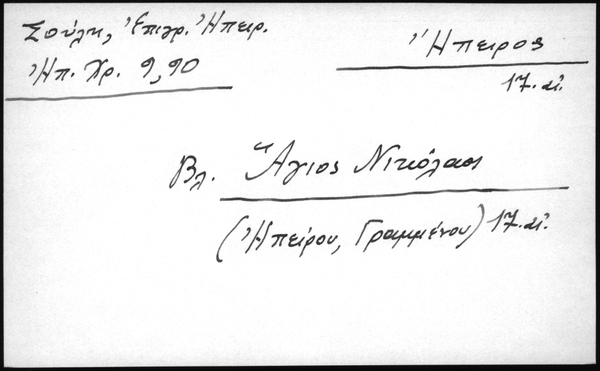 Σούλη, Ἐπιγρ. Ἠπειρ.
Ἠπ. Χρ. 9,90
Ἤπειρος
17. αἰ.
Βλ. Ἅγιος Νικόλαος
(Ἠπείρου, Γραμμένου) 17. αἰ.